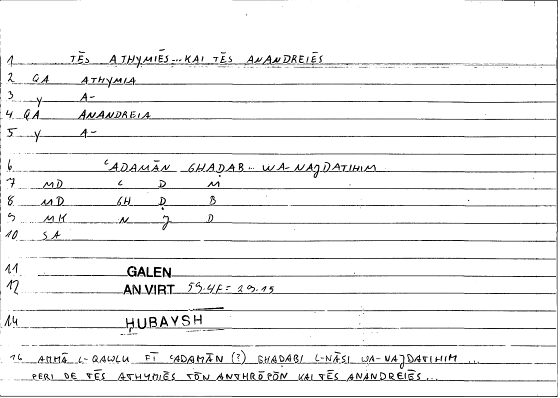 1 TĒS ATHYMIĒS... KAI TĒS ANANDREIĒS
2 QA ATHYMIA
3 y A-
4 QA ANANDREIA
5 y A-
6 ʿADAMĀN GHAḌAB... WA-NAJDATIHIM
7 MD ʿ D M
8 MD GH Ḍ B
9 MK N J D
10 SA
11 GALEN
12 AN.VIRT 59.4f = 29.15
14 ḤUBAYSH
16 AMMĀ L-QAWLU FĪ ʿADAMĀN (?) GHAḌABI L-NĀSI WA-NAJDATIHIM ...
PERI DE TĒS ATHYMIĒS TŌN ANTHRŌPŌN KAI TĒS ANANDREIĒS...